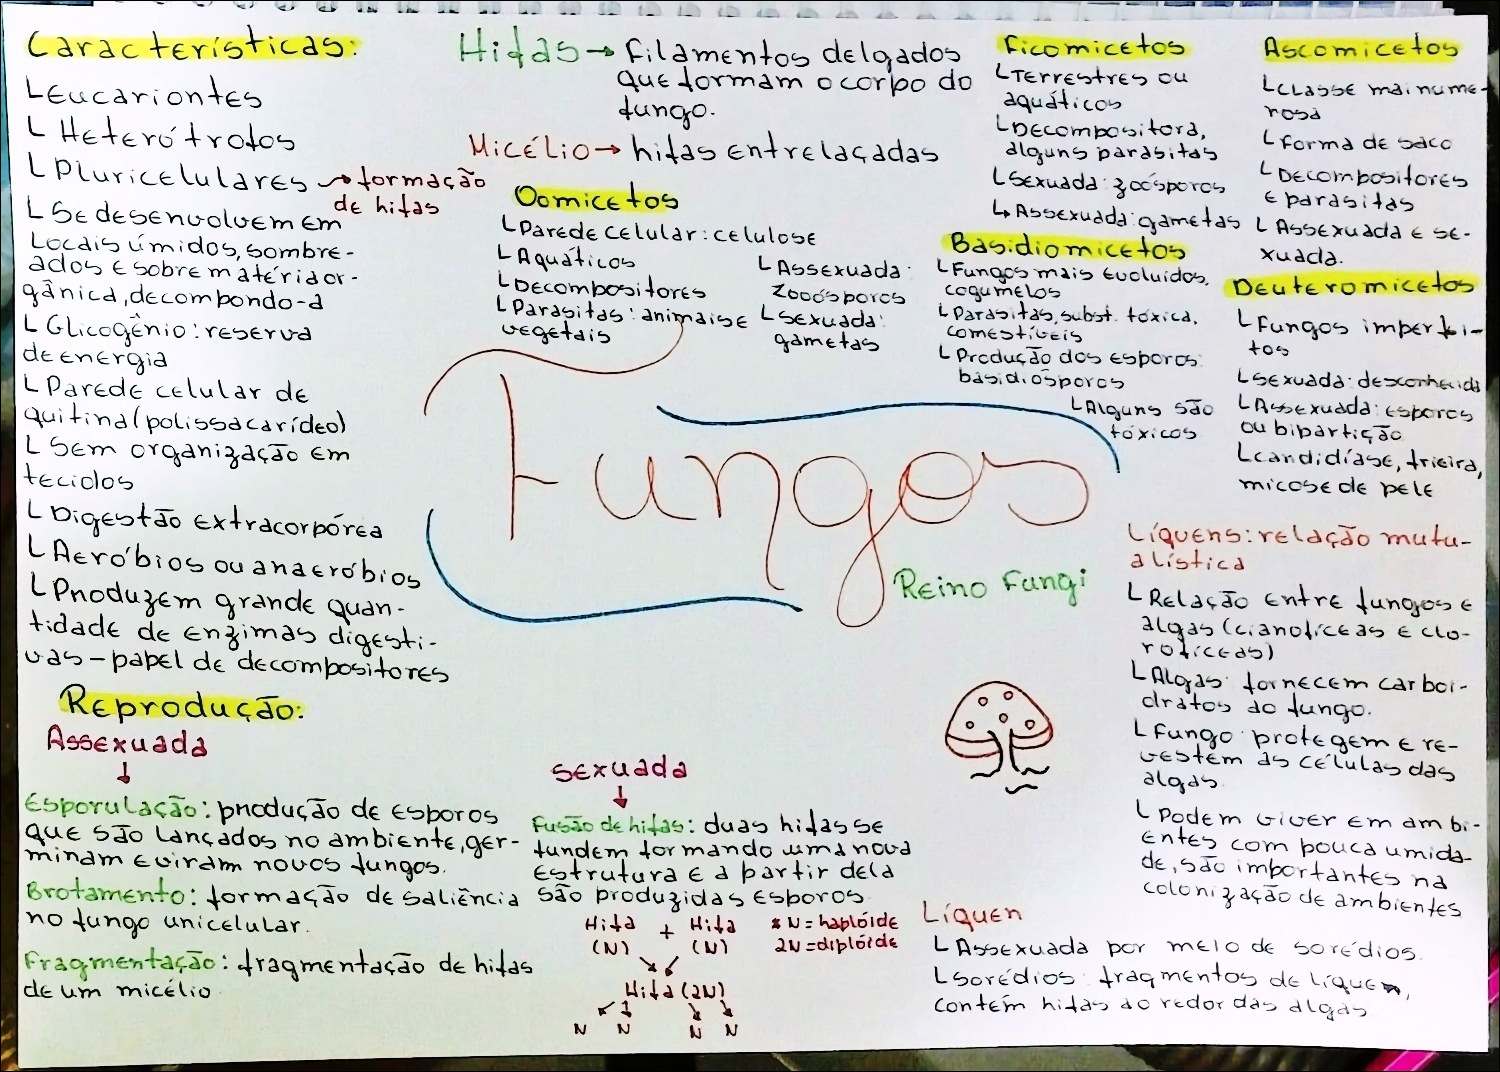 Características:
Eucariontes
Heterótrofos
Pluricelulares → formação
de hifas
Se desenvolvem em
locais úmidos, sombre-
ados e sobre matéria or-
gânica, decompondo-a
Glicogênio: reserva
de energia
Parede celular de
quitina (polissacarídeo)
Sem organização em
tecidos
Digestão extracorpórea
Aeróbios ou anaeróbios
Produzem grande quan-
tidade de enzimas digesti-
vas - papel de decompositores
Reprodução:
Assexuada
↓
Esporulação: produção de esporos
que são lançados no ambiente, ger-
minam e viram novos fungos.
Brotamento: formação de saliência
no fungo unicelular.
Fragmentação: fragmentação de hifas
de um micélio
Hifas → filamentos delgados
que formam o corpo do
fungo.
Micélio → hifas entrelaçadas
Oomicetos
Parede celular: celulose
Aquáticos
Decompositores
Parasitas: animais e
vegetais
Assexuada:
zooósporos
Sexuada:
gametas
Fungos
Reino Fungi
sexuada
↓
Fusão de hifas: duas hifas se
fundem formando uma nova
estrutura e a partir dela
são produzidas esporos.
Hifa + Hifa
(N) (N)
* N = haplóide
2N = diplóide
Hifa (2N)
N N N N
Ficomicetos
Terrestres ou
aquáticos
Decompositora,
alguns parasitas
Sexuada: zoósporos
Assexuada: gametas
Basidiomicetos
Fungos mais evoluídos,
cogumelos
Parasitas, subst. tóxica,
comestíveis
Produção dos esporos:
basidiósporos
Alguns são
tóxicos
Ascomicetos
Classe mai nume-
rosa
forma de saco
Decompositores
e parasitas
Assexuada e se-
xuada.
Deuteromicetos
Fungos imperfei-
tos
Sexuada: desconhecida
Assexuada: esporos
ou bipartição
candidíase, frieira,
micose de pele
Líquens: relação mutu-
alística
Relação entre fungos e
algas (cianofíceas e clo-
rofíceas)
Algas: fornecem carboi-
dratos ao fungo.
Fungo: protegem e re-
vestem as células das
algas.
Podem viver em ambi-
entes com pouca umida-
de, são importantes na
colonização de ambientes
Líquen
Assexuada por meio de sorédios.
Sorédios: fragmentos de líquen,
contém hifas ao redor das algas